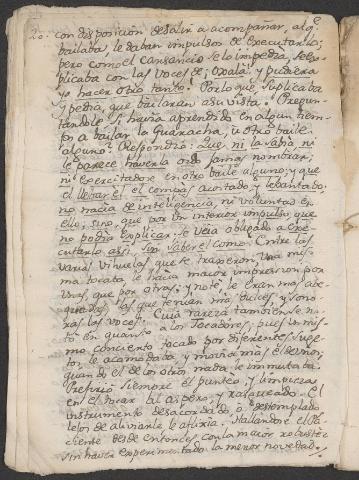 20. con disposicion de salir a acompañar, al q.e
bailaba, le daban impulsos de executarlo;
pero como el cansancio se lo impedia, se ex-
plicaba con las voces de: Oxalá, y pudiera
yo hacer otro tanto. Por lo que suplicaba
y pedia, que bailaran a su vista. Pregun-
tandolo si havia aprendido en algun tiem-
po a bailar la Guaracha, u otro baile
alguno? Respondio: Que, ni la sabía, ni
le parece haverla oido jamas nombrar;
ni exercitadose en otro baile alguno; y que
el llebar el compas acortado, y levantado,
no nacia de inteligencia, ni voluntad en
ello; sino, que por un interior impulso, que
no podia explicar se veia obligado a exe-
cutarlo assi, sin saber el como. Entre las
varias vihuelas que se traxeron, una mis-
ma tocata le hacia maior impression por
unas, que por otras; y noté, le eran mas ade-
quadas las que tenian mas dulces, y sono-
ras las voces. Cuia rareza tambien se no-
tó en quanto a los Tocadores, pues un mis-
mo concierto tocado por diferentes suge-
tos, le acomodaba, y movia mas el de uno,
quando el de los otros nada le immutaba.
Prefirio siempre el punteo, y limpieza
en el tocar al aspero, y rasgueado. El
instrumento desacordado, o destemplado
lejos de aliviarle le afligia. Hallandose el Pa-
ciente desde entonces con la maior robustez
sin haver experimentado la menor novedad.